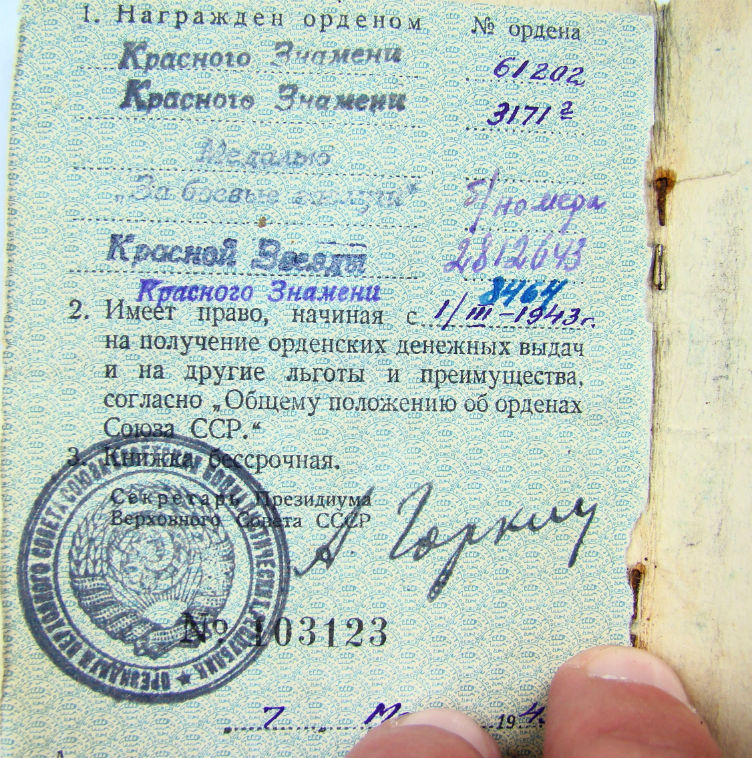 1. Награжден орденом № ордена
Красного Знамени 61202
Красного Знамени 3171 2
Медалью
„За боевые заслуги“ б/номера
Красной Звезды 2812643
Красного Знамени 8464
2. Имеет право, начиная с 1/III-1943г.
на получение орденских денежных выдач
и на другие льготы и преимущества,
согласно „Общему положению об орденах
Союза ССР.“
3. Книжка бессрочная.
Секретарь Президиума
Верховного Совета СССР
А Горкин
№ 103123
7 19
ПРЕЗИДИУМ ВЕРХОВНОГО СОВЕТА СОЮЗА СОВЕТСКИХ СОЦИАЛИСТИЧЕСКИХ РЕСПУБЛИК